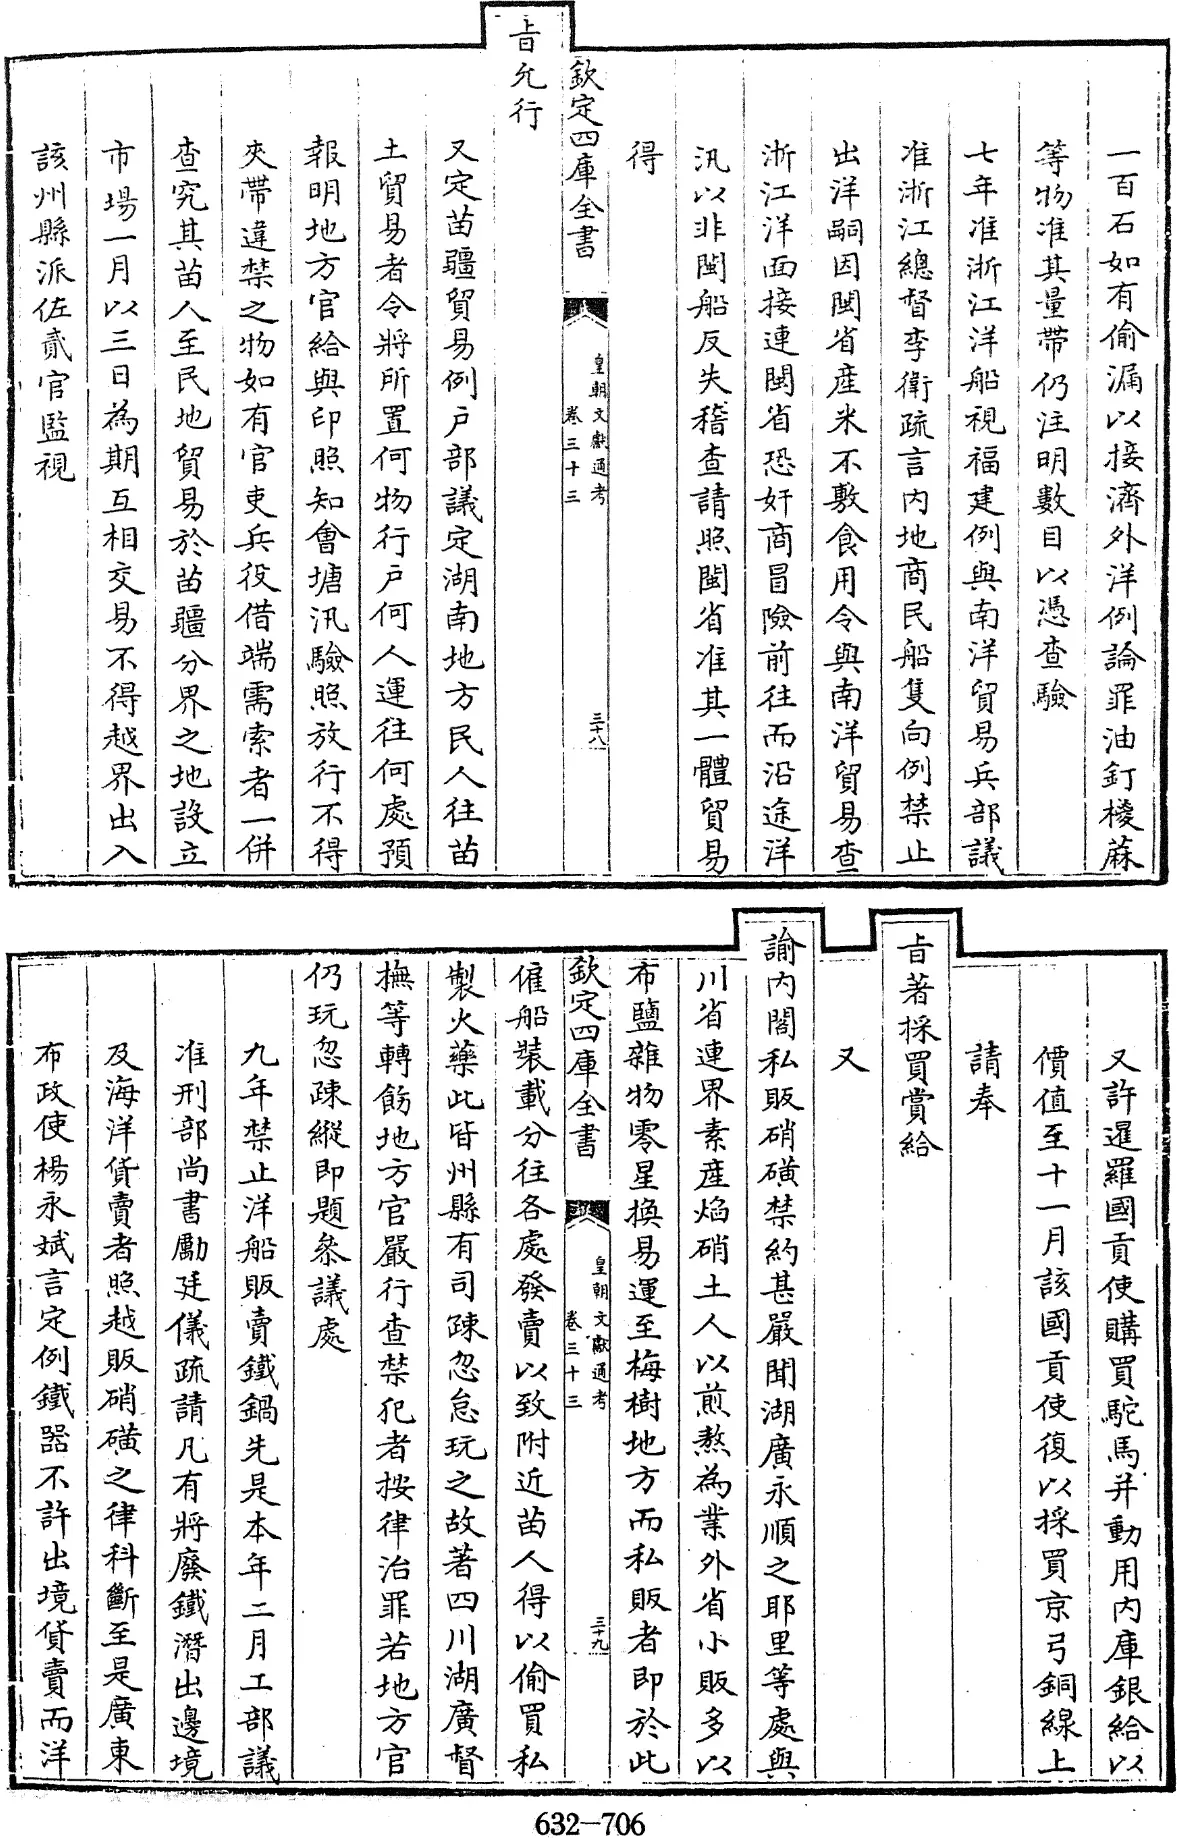 一百石如有偷漏以接濟外洋例論罪油釘椶蔴
等物准其量帶仍注明數目以憑查驗
七年准浙江洋船視福建例與南洋貿易兵部議
准浙江總督李衛疏言内地商民船隻向例禁止
出洋嗣因閩省産米不敷食用令與南洋貿易查
浙江洋面接連閩省恐奸商冒險前往而沿途洋
汛以非閩船反失稽查請照閩省准其一體貿易
得
欽定四庫全書
皇朝文獻通考
卷三十三
三十八
旨允行
又定苗疆貿易例戶部議定湖南地方民人往苗
土貿易者令將所置何物行戶何人運往何處預
報明地方官給與印照知會塘汛驗照放行不得
夾帶違禁之物如有官吏兵役借端需索者一併
查究其苗人至民地貿易於苗疆分界之地設立
市場一月以三日為期互相交易不得越界出入
該州縣派佐貳官監視
又許暹羅國貢使購買駝馬并動用内庫銀給以
價值至十一月該國貢使復以採買京弓銅線上
請奉
旨著採買賞給
又
諭内閣私販硝磺禁約甚嚴聞湖廣永順之耶里等處與
川省連界素産焰硝土人以煎熬為業外省小販多以
布鹽雜物零星換易運至梅樹地方而私販者即於此
欽定四庫全書
皇朝文獻通考
卷三十三
三十九
僱船裝載分往各處發賣以致附近苗人得以偷買私
製火藥此皆州縣有司疎忽怠玩之故著四川湖廣督
撫等轉飭地方官嚴行查禁犯者按律治罪若地方官
仍玩忽疎縱即題參議處
九年禁止洋船販賣鐵鍋先是本年二月工部議
准刑部尚書勵廷儀疏請凡有將廢鐵潛出邊境
及海洋貨賣者照越販硝磺之律科斷至是廣東
布政使楊永斌言定例鐵器不許出境貨賣而洋
632-706